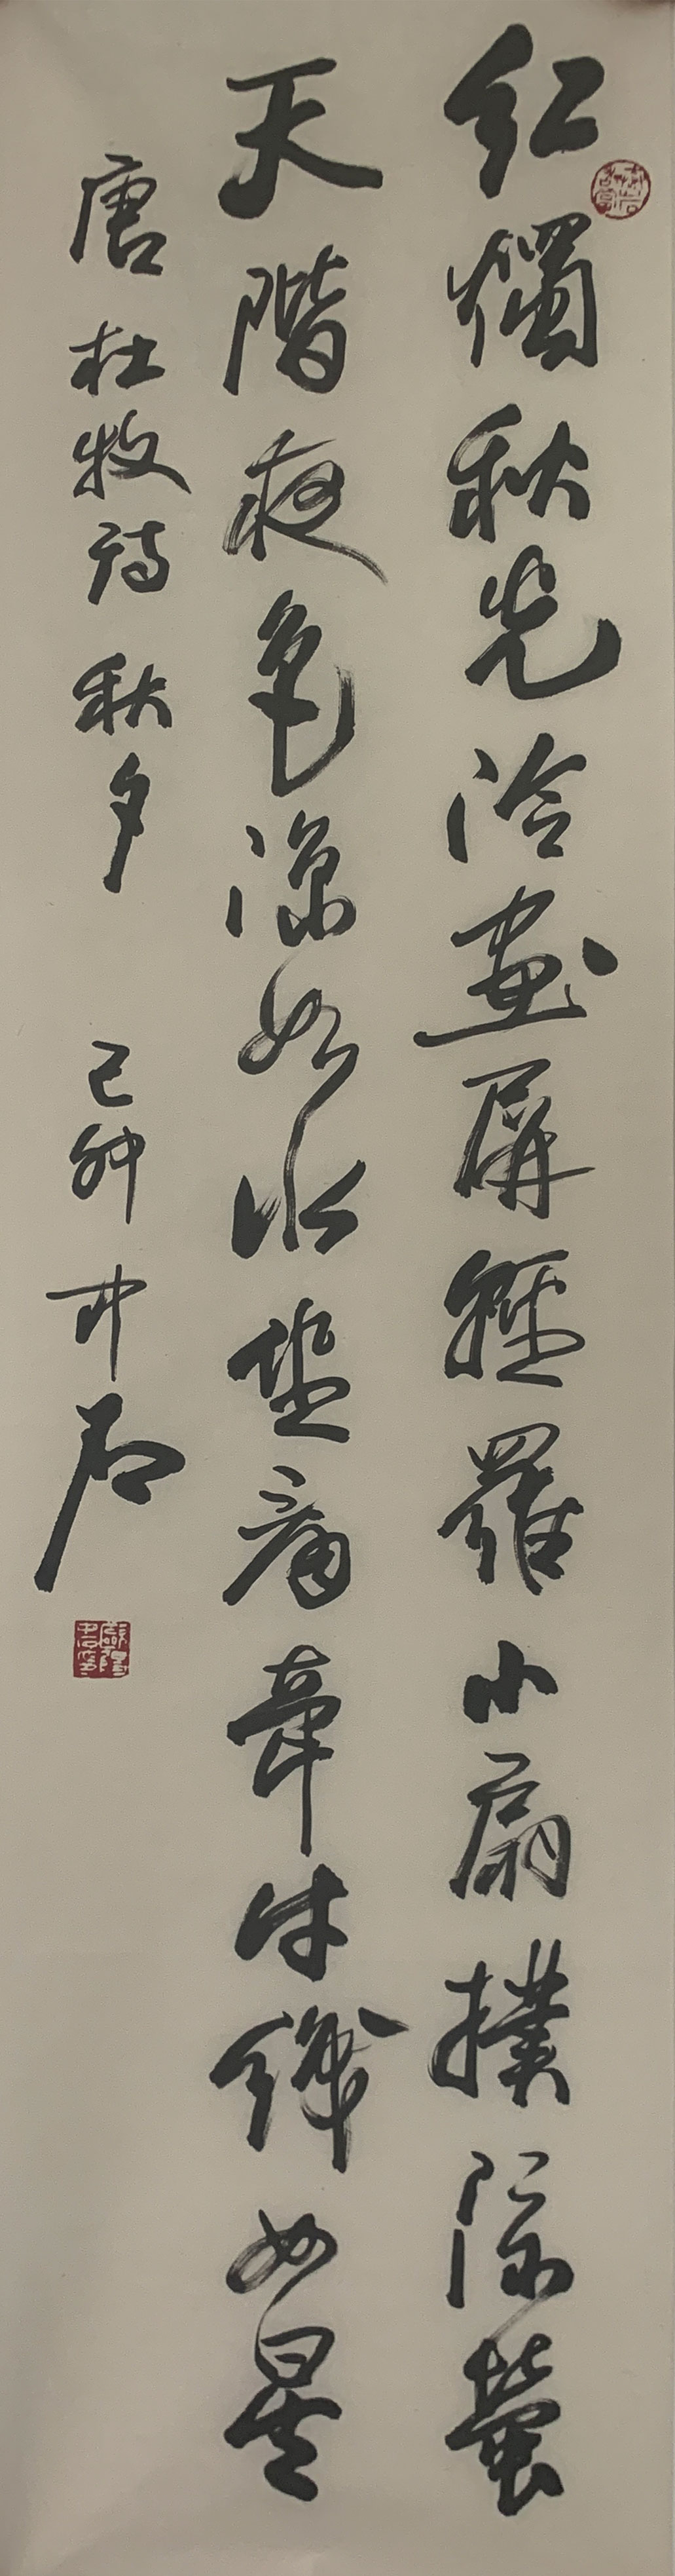 紅燭秋光冷畫屏輕羅小扇撲流螢
天階夜色涼如水坐看牽牛織女星
唐杜牧詩秋夕 己卯中石